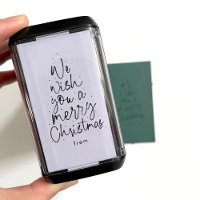 We
wish
you a
merry
Christmas
from